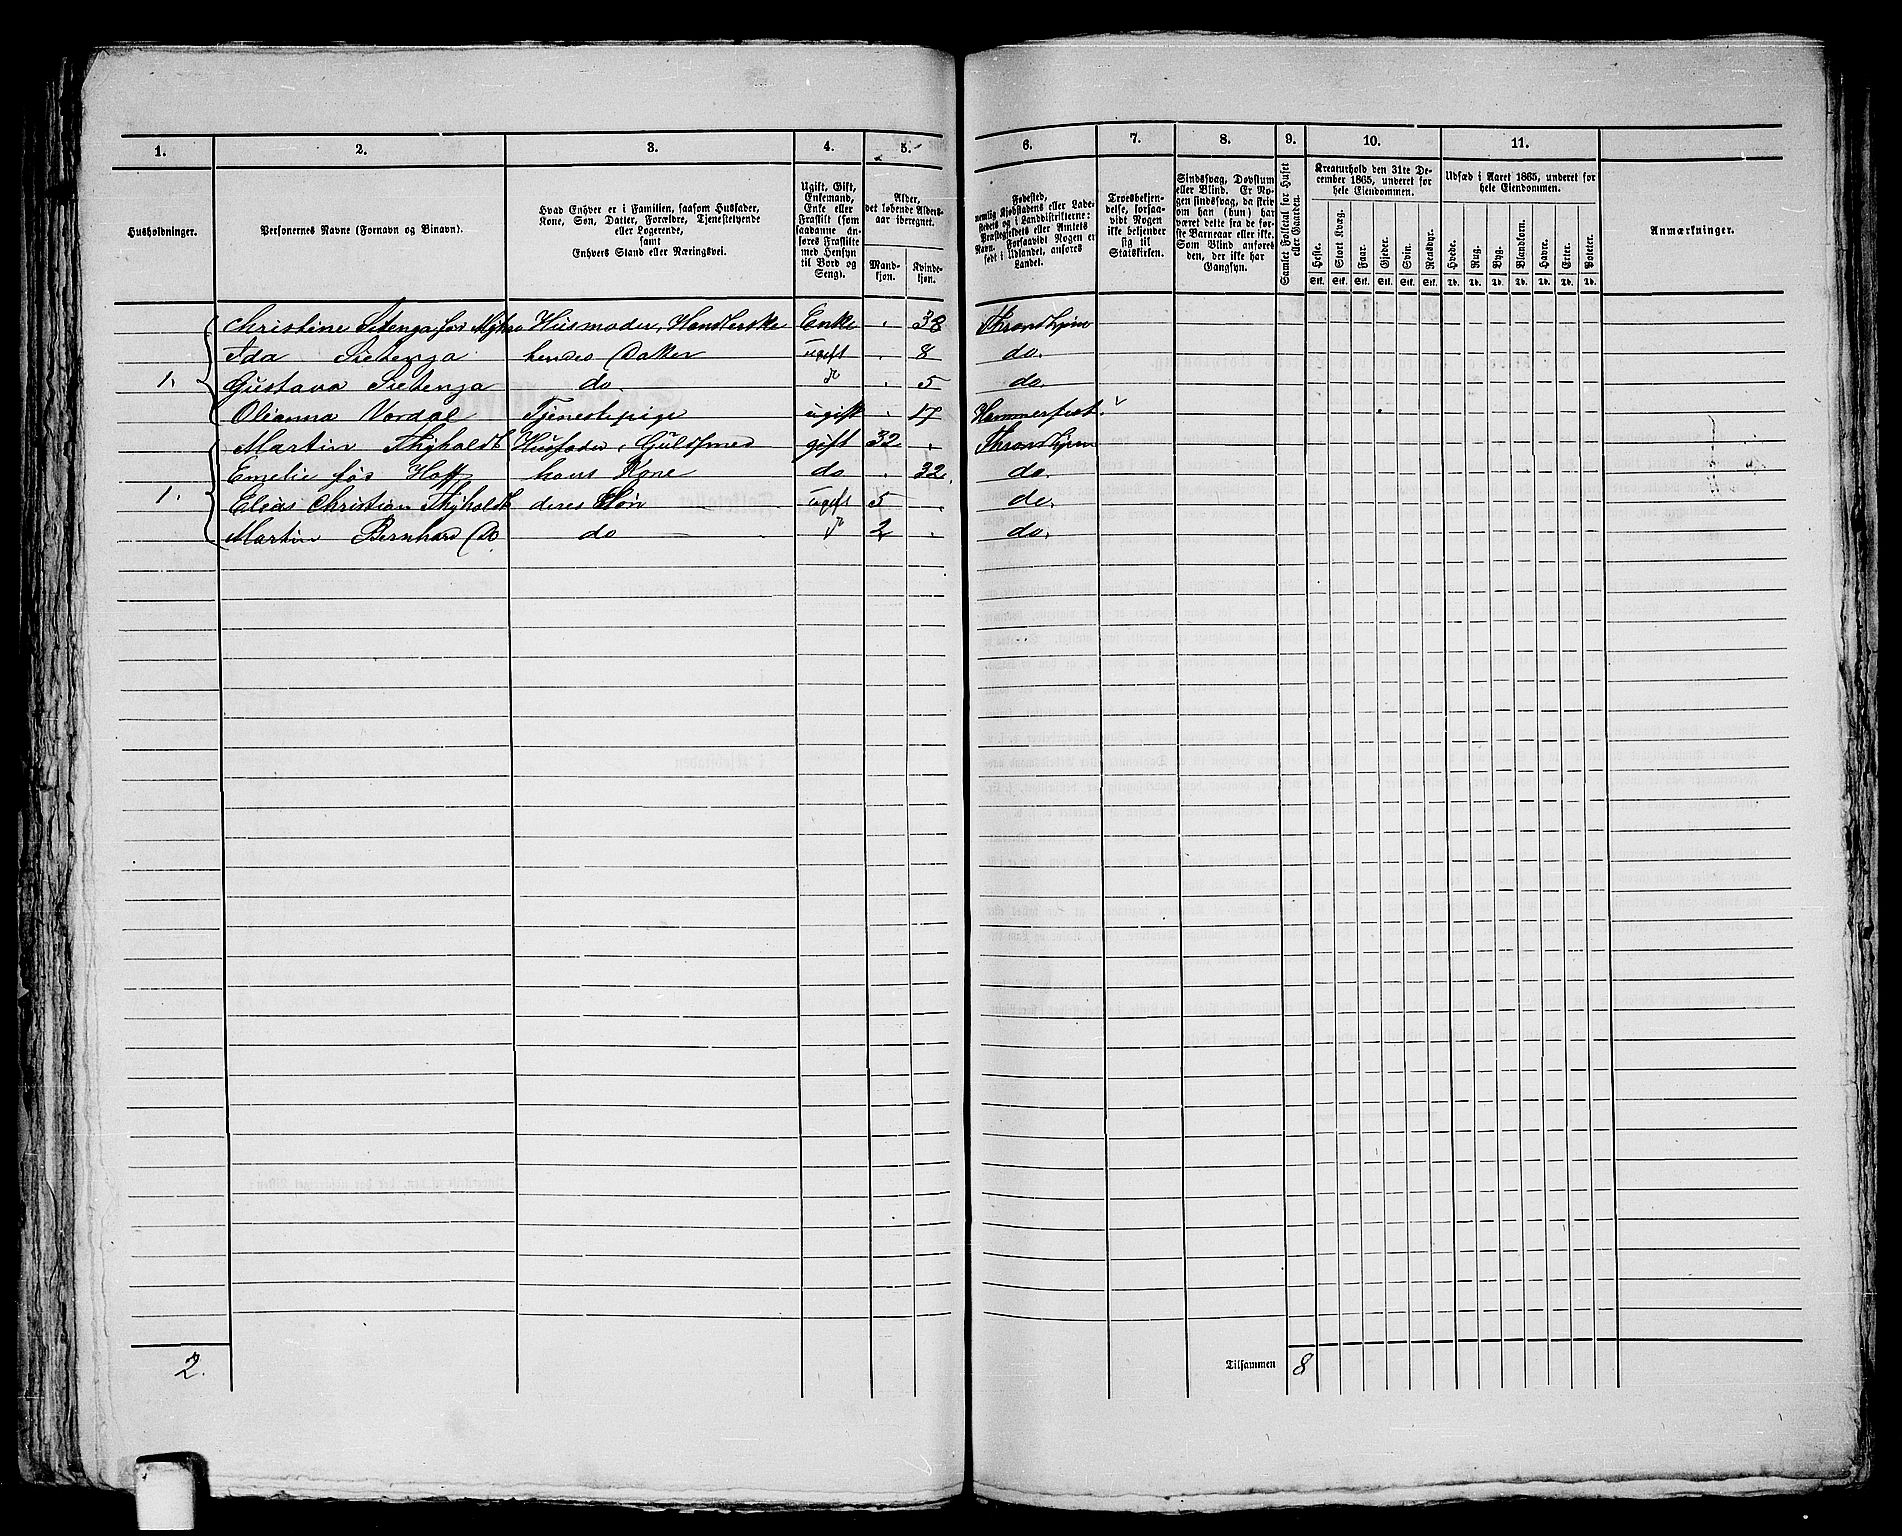 1. 2. 3. 4. 5. 6. 7. 8. 9. 10. 11.
Husholdninger.
Personernes Navne (Fornavn og Binavn).
Hvad Enhver er i Familien, saasom Husfader,
Kone, Søn, Datter, Forældre, Tjenestetyende
eller Logerende,
samt
Enhvers Stand eller Næringsvei.
Ugift, Gift,
Enkemand,
Enke eller
Fraskilt (som
saadanne an-
føres Fraskilte
med Hensyn
til Bord og
Seng).
Alder,
det løbende Alders-
aar iberegnet.
Mand-
kjøn.
Kvinde-
kjøn.
Fødested,
nemlig Kjøbstadens eller Lade-
stedets og i Landdistrikterne:
Præstegjeldets eller Amtets
Navn. Forsaavidt Nogen er
født i Udlandet, anføres
Landet.
Troesbekjen-
delse, forsaa-
vidt Nogen
ikke bekjender
sig til
Statskirken.
Sindssvag, Døvstum
eller Blind. Er No-
gen sindssvag, da skriv
om han (hun) har
været dette fra de før-
ste Barneaar eller ikke.
Som Blind anføres
den, der ikke har
Gangsyn.
Samlet Folketal for Huset
eller Gaarden.
Kreaturhold den 31te De-
cember 1865, underet for
hele Eiendommen.
Heste. Stort Kvæg. Faar. Gjeder. Svin. Rensdyr.
Stk. Stk. Stk. Stk. Stk. Stk.
Udsæd i Aaret 1865, underet for
hele Eiendommen.
Hvede. Rug. Byg. Blandkorn. Havre. Erter. Poteter.
Td. Td. Td. Td. Td. Td. Td.
Anmærkninger.
Christine Sietenga født Husmoder, Handlerske Enke 38 Throndhjem
Ida Sietenga hendes Datter ugift 8 do.
1. Gustava Sietenga do. 5 do.
Olianna Vordal Tjenestepige ugift 17 Hammerfest
Martin Thyholdt Husfader, Guldsmed gift 32 Throndhjem
Emelie fød Hoff hans Kone do 32 do.
1. Elias Christian Thyholdt deres Søn ugift 5 do.
Martin Bernhard Do do 2 do.
2. Tilsammen 8